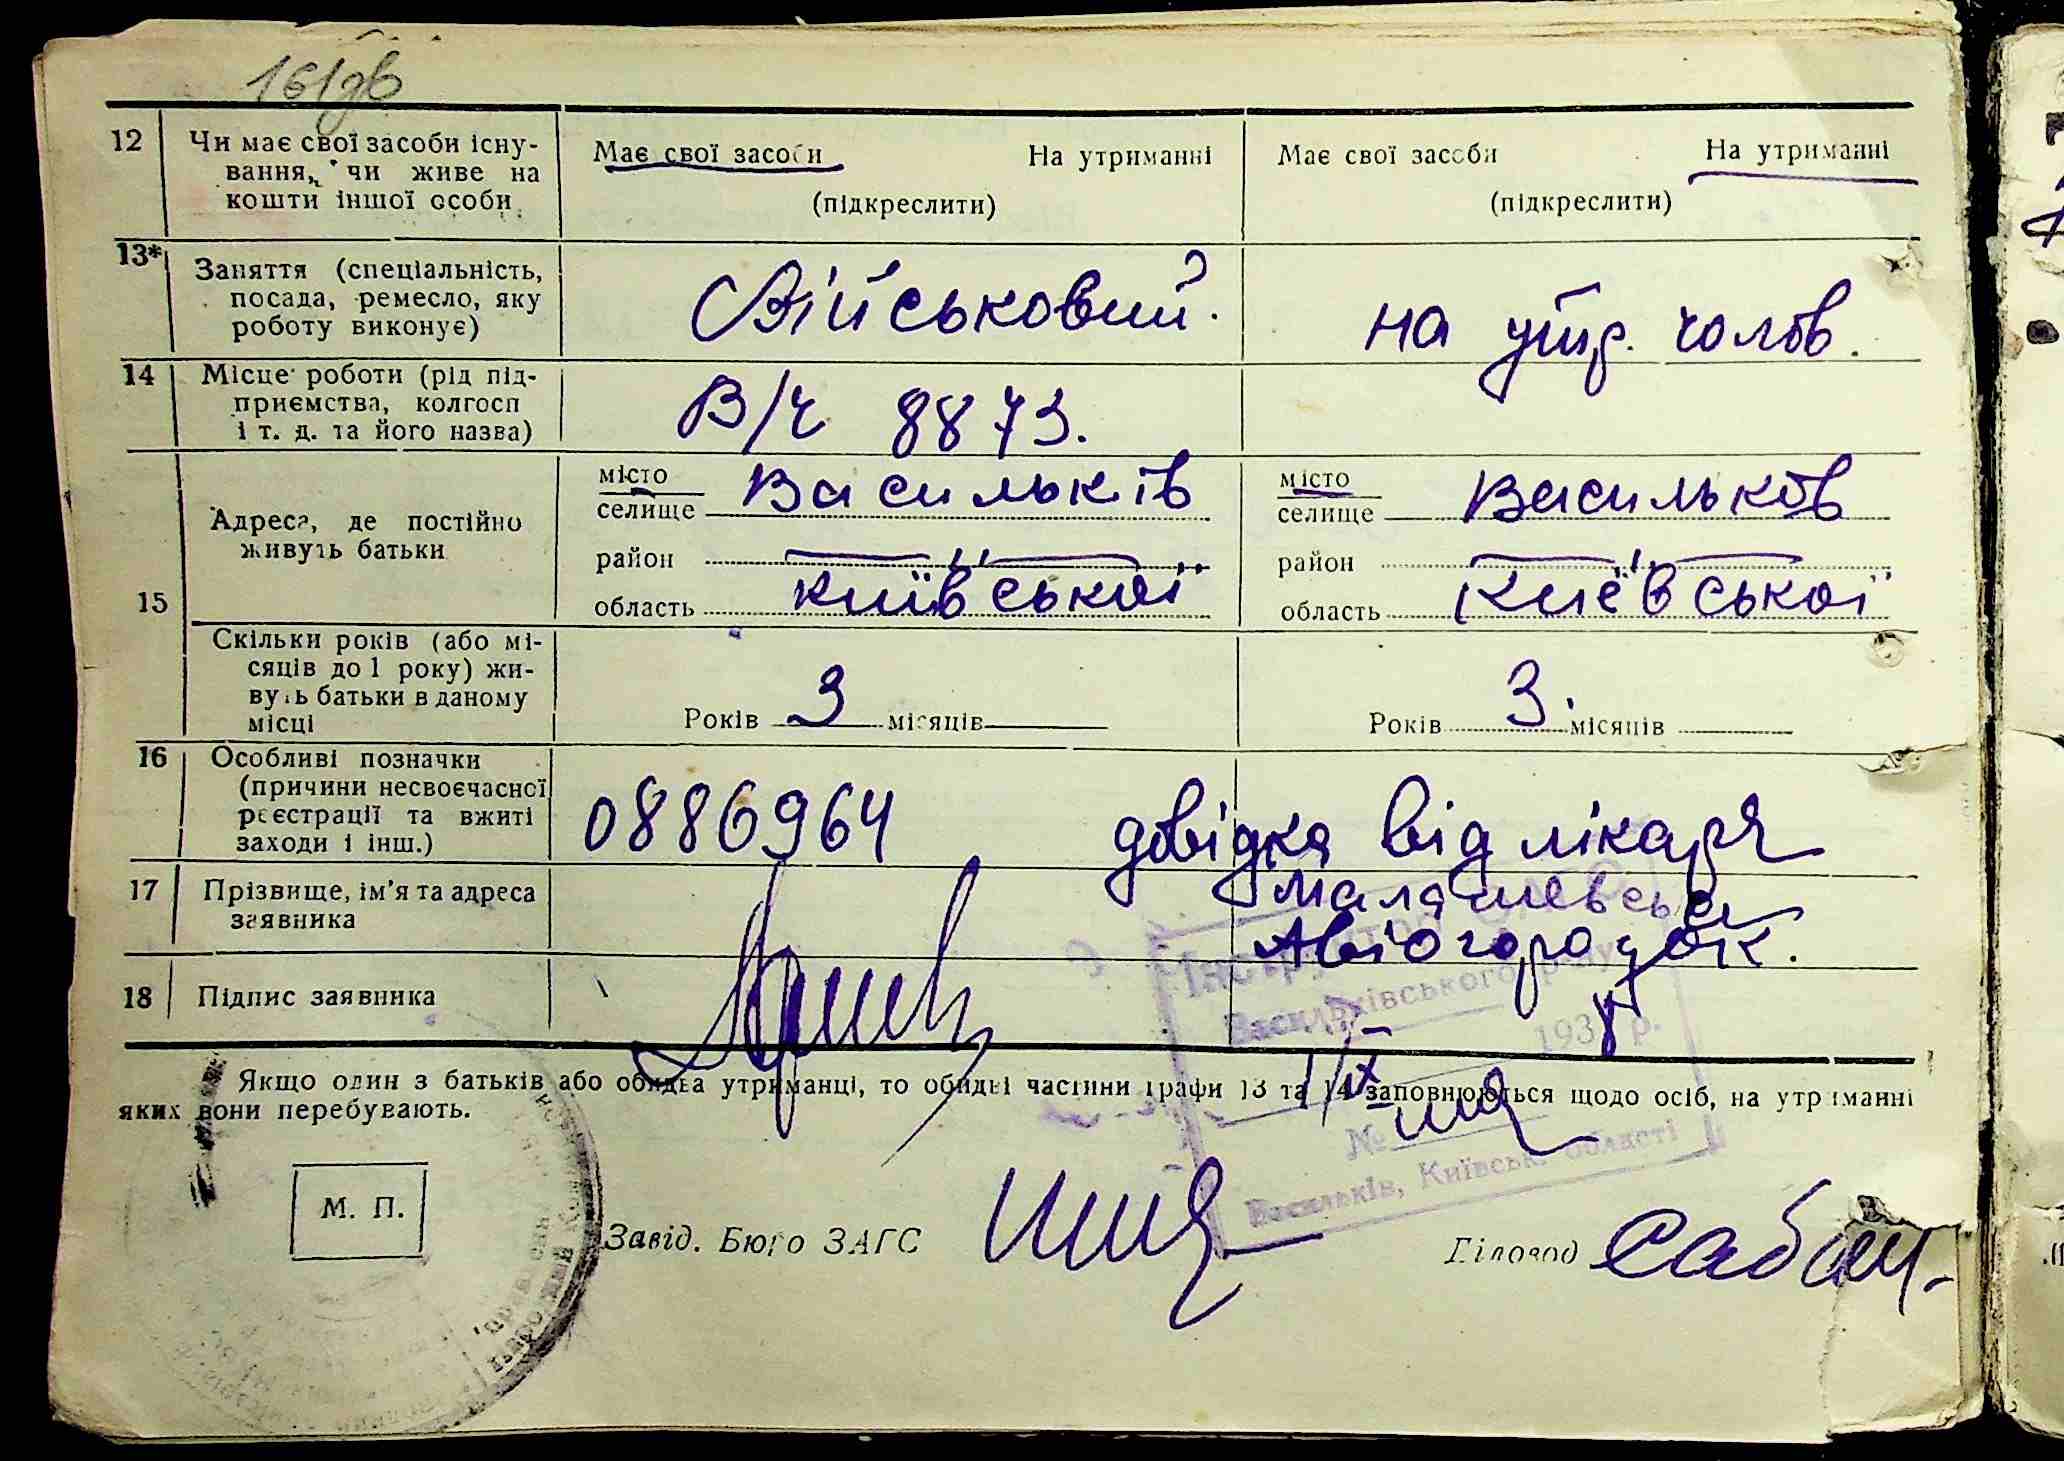 161дв
12 Чи має свої засоби існу-
вання, чи живе на
кошти іншої особи
Має свої засоби На утриманні
(підкреслити)
Має свої засоби На утриманні
(підкреслити)
13* Заняття (спеціальність,
посада, ремесло, яку
роботу виконує)
Військовий.
на утр. чолов.
14 Місце роботи (рід під-
приємства, колгосп
і т. д. та його назва)
В/ч 8873.
15 Адреса, де постійно
живуть батьки
місто
селище Васильків
район — " —
область київської
місто
селище Васильков
район — " —
область Киёвської
Скільки років (або мі-
сяців до 1 року) жи-
вуть батьки в даному
місці
Років 3 місяців
Років 3. місяців
16 Особливі позначки
(причини несвоєчасної
реєстрації та вжиті
заходи і інш.)
0886964 довідка від лікаря
Малашевськ
Авіогородок.
17 Прізвище, ім'я та адреса
заявника
18 Підпис заявника
Васильківського
1938 р.
1/IX
№
Васильків, Київськ. області
Якщо один з батьків або обидва утриманці, то обидві частини графи 13 та 14 заповнюються щодо осіб, на утриманні
яких вони перебувають.
М. П.
Завід. Бюро ЗАГС
Діловод